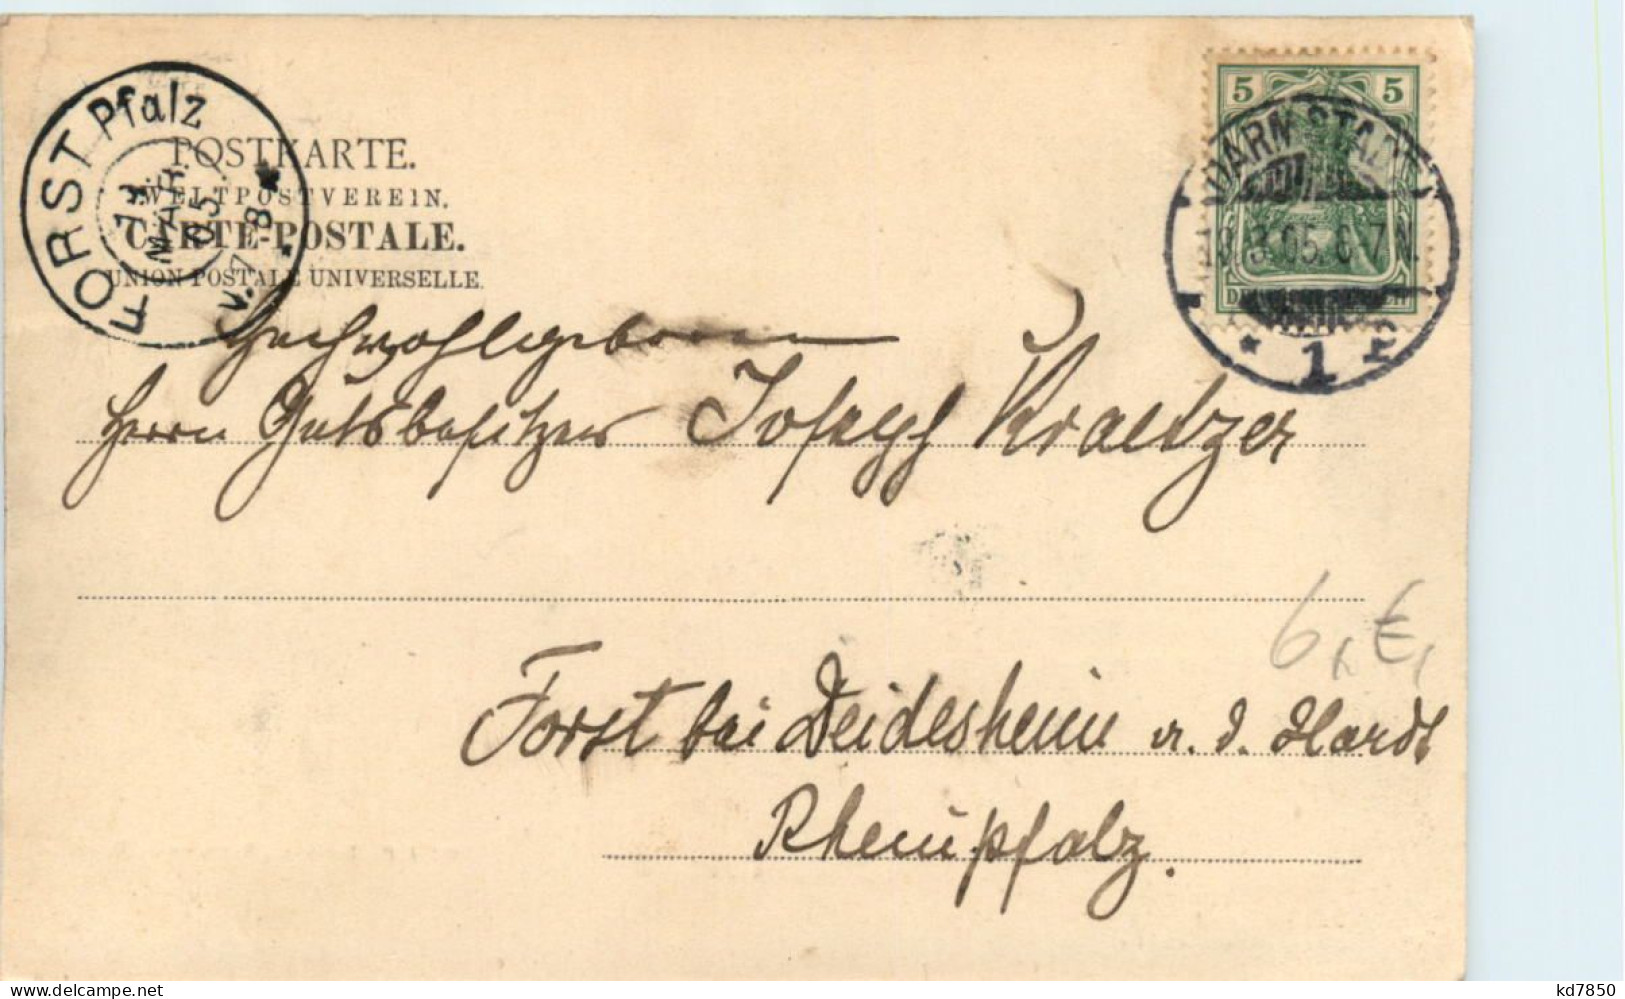 FORST Pfalz
11 MAR 05
V. 7 8
POSTKARTE.
WELTPOSTVEREIN.
CARTE-POSTALE.
UNION POSTALE UNIVERSELLE.
5 5
DARMSTADT
.3.05. 6-7N.
DEUTSCHES REICH
* 1
Hochwohlgeboren
Herrn Gutsbesitzer Joseph Kraetzer
6,- €,
Forst bei Deidesheim a. d. Hardt
Rheinpfalz.
kd7850